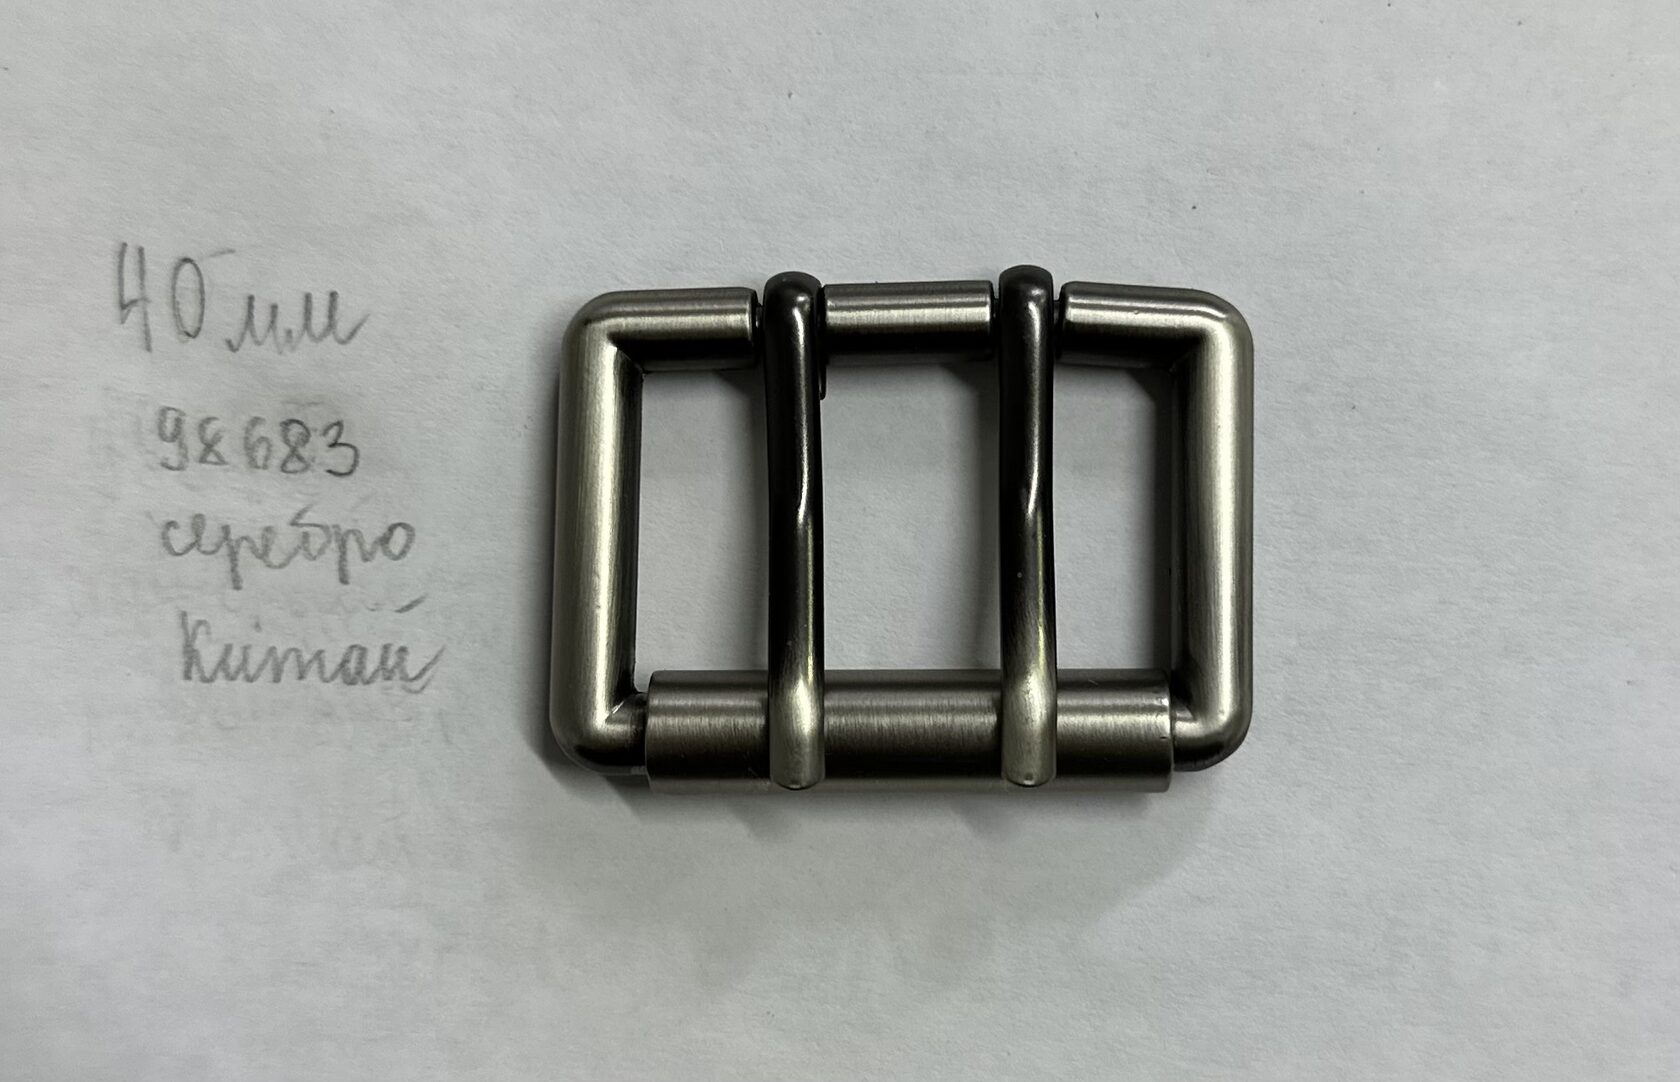 40 мм
98683
серебро
Китай